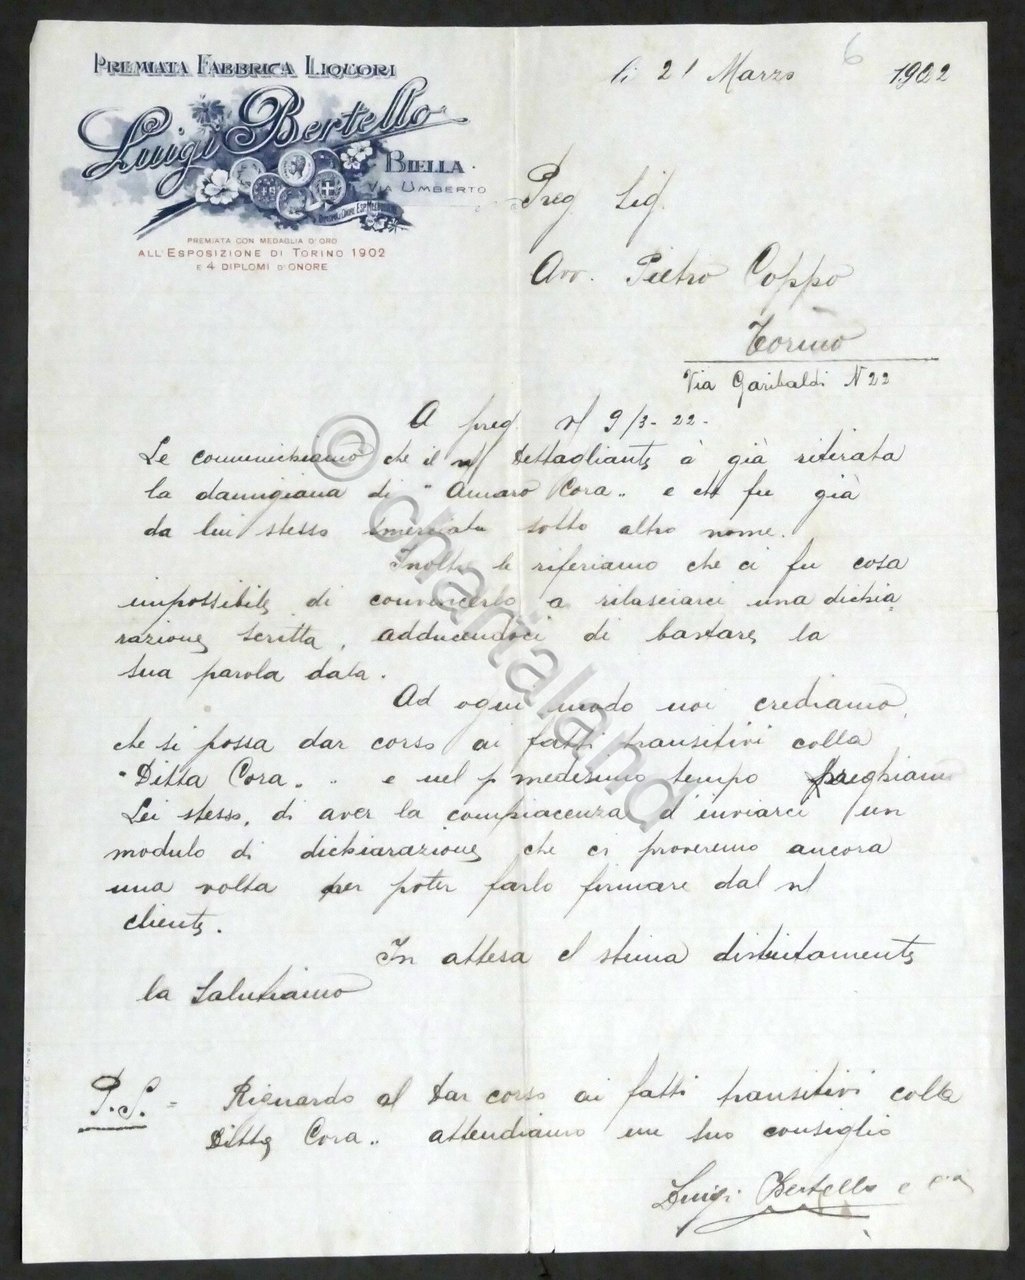 PREMIATA FABBRICA LIQUORI
Luigi Bertello
BIELLA
VIA UMBERTO
PREMIATA CON MEDAGLIA D'ORO
ALL'ESPOSIZIONE DI TORINO 1902
E 4 DIPLOMI D'ONORE
6
li 21 Marzo 1922
Preg Sig.
Avv. Pietro Coppo
Torino
Via Garibaldi N 22
A preg. 9/3-22-
Le comunichiamo che il n/ Dettagliante à già ritirata
la damigiana di "Amaro Cora" e che fu già
da lui stesso smerciata sotto altro nome.
Inoltre le riferiamo che ci fu cosa
impossibile di convincerlo a rilasciarci una dichia
razione scritta, adducendoci di bastare la
sua parola data.
Ad ogni modo noi crediamo
che si possa dar corso ai fatti transitivi colla
"Ditta Cora" e nel medesimo tempo preghiamo
Lei stesso, di aver la compiacenza d'inviarci un
modulo di dichiarazione che ci proveremo ancora
una volta per poter farlo firmare dal n/
cliente.
In attesa e stima distintamente
la Salutiamo
P.S. = Riguardo al dar corso ai fatti transitivi colla
Ditta Cora" attendiamo un suo consiglio
Luigi Bertello e
© chartaland